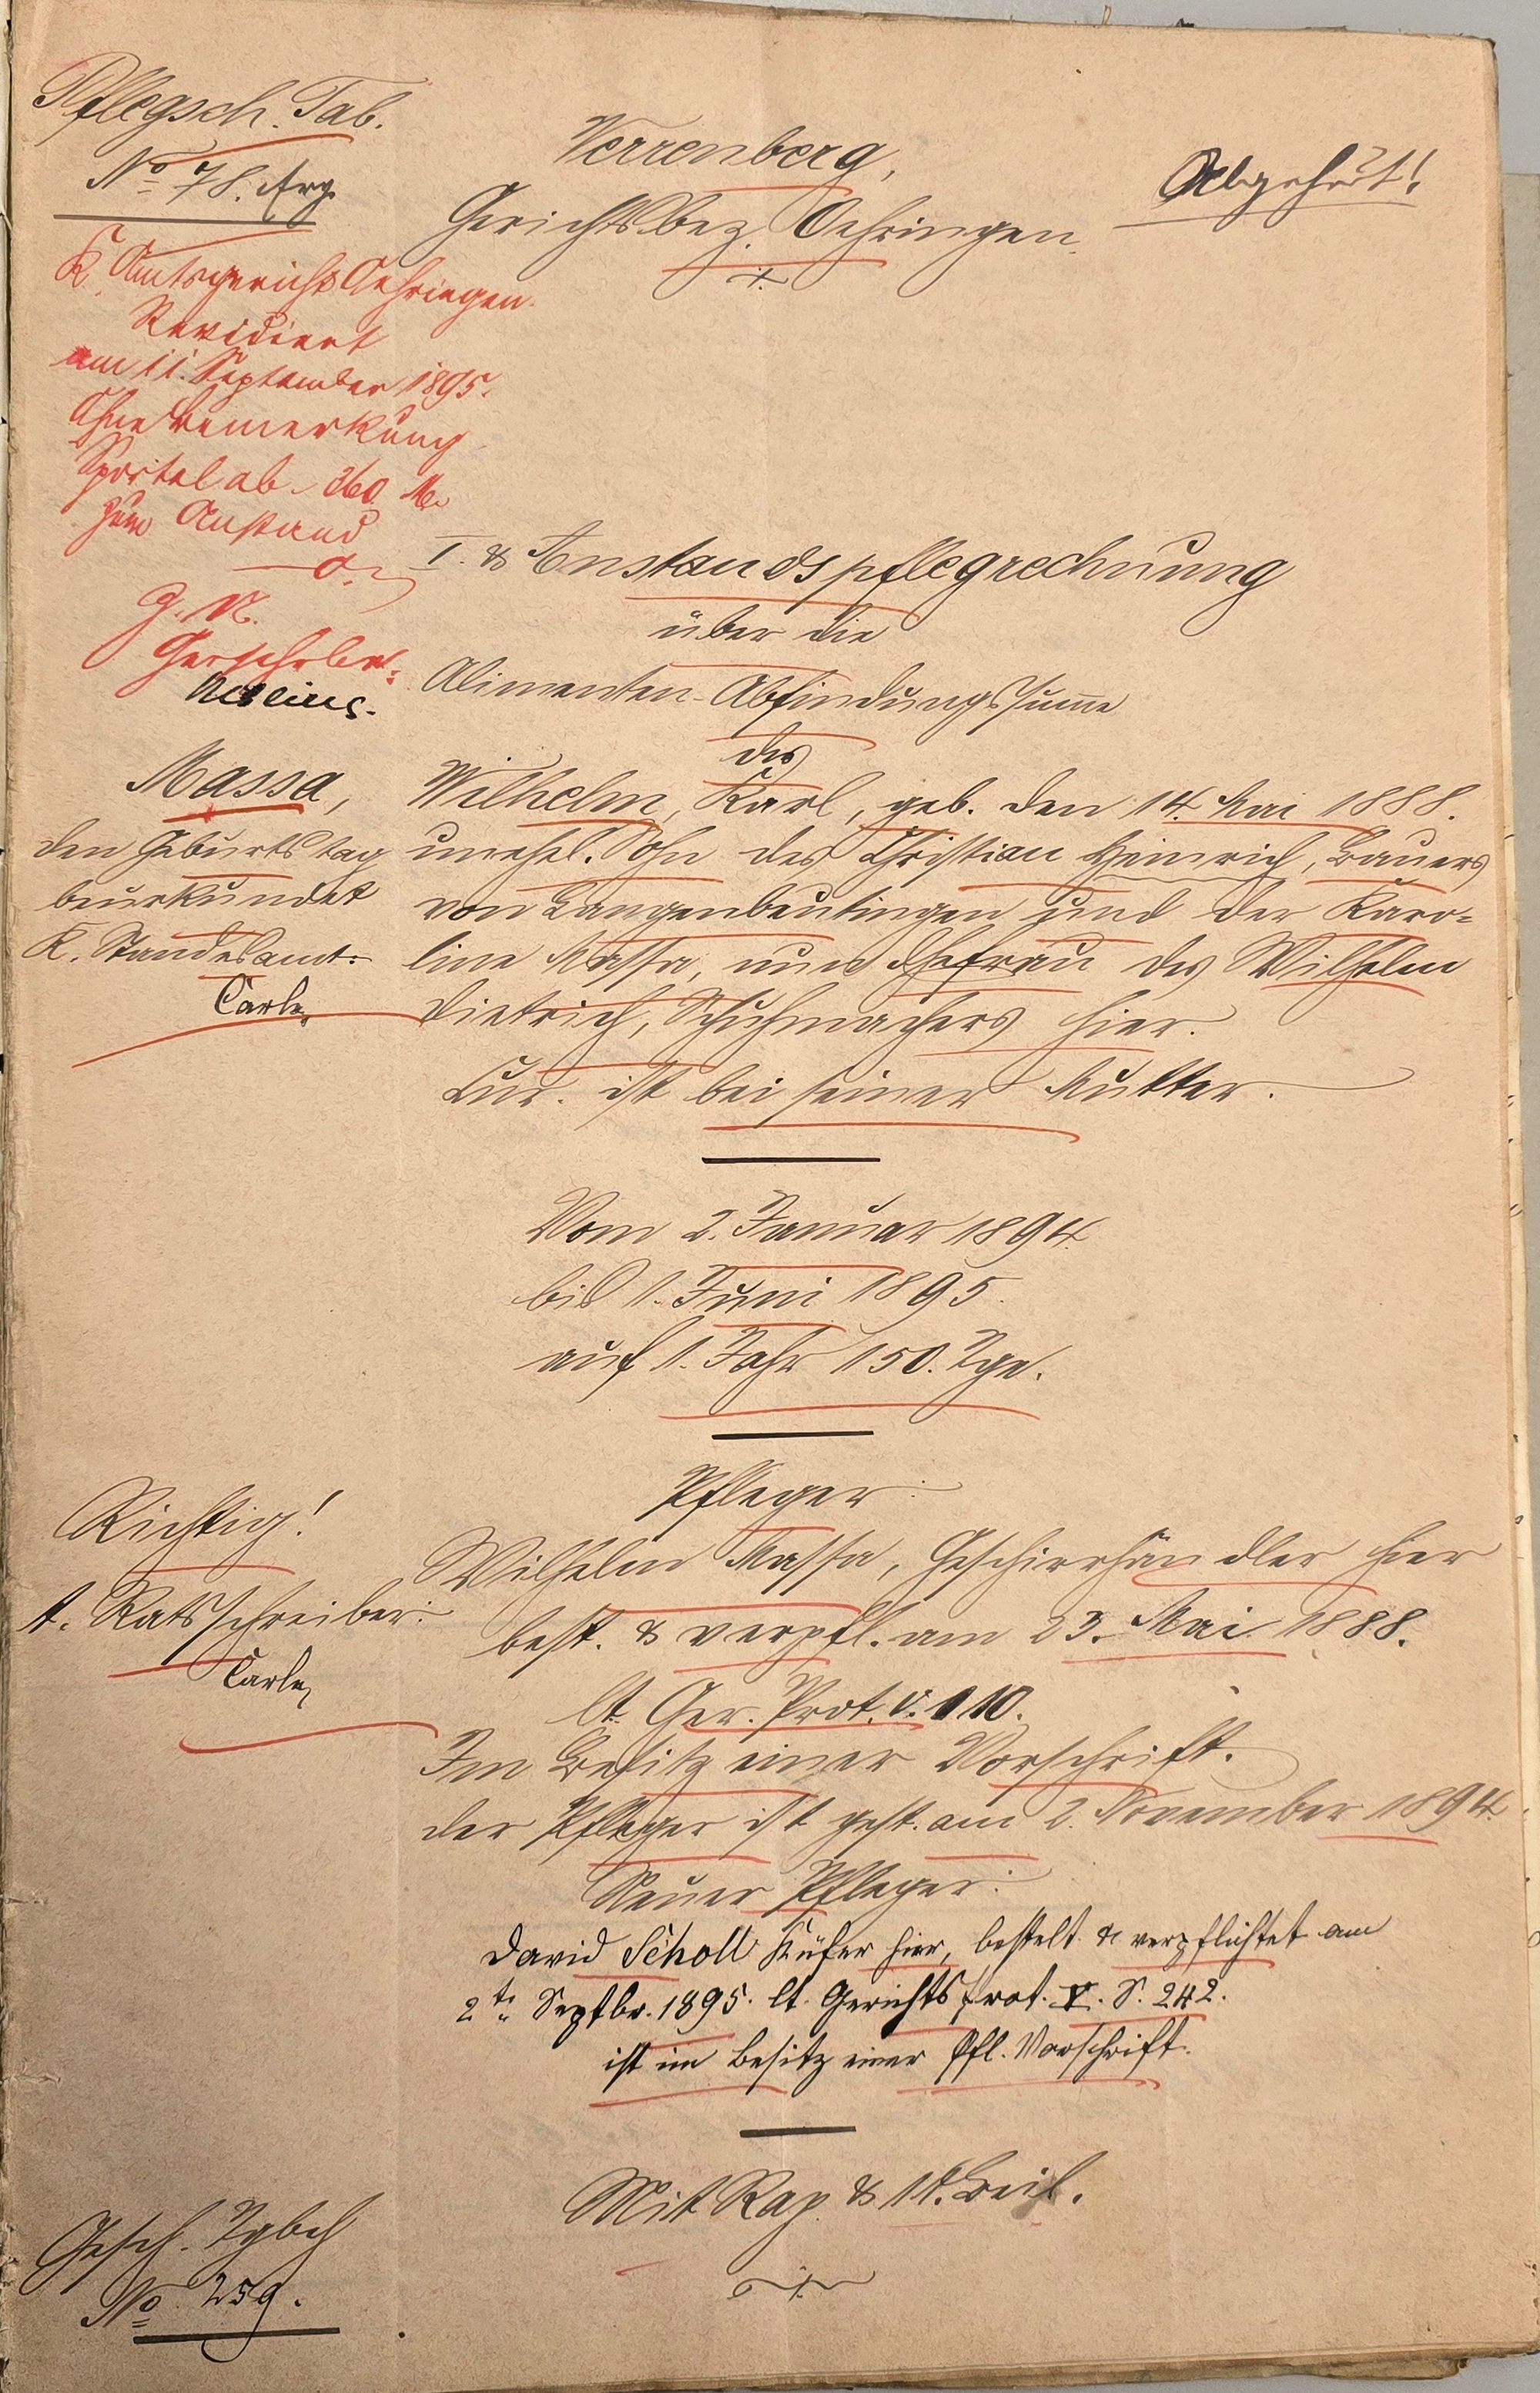 Pflegsch. Tab.
No 78. Erg.
Verrenberg,
Gerichtsbez. Oehringen.
Abgehört!
K. Amtsgericht Oehringen.
Revidiert
am 11. September 1895.
Ohne Bemerkung
Sportel ab 260 M.
zum Anstand
G. N.
I. & Anstandspflegrechnung
über die
Alimenten-Abfindungssumme
des
Massa,
den Geburtstag
beurkundet
K. Standesamt:
Carle
Wilhelm, Karl, geb. den 14. Mai 1888.
unehel. Sohn des Christian Heinrich, Bauers
von Langenbeutingen und der Karo-
line Massa, nun Ehefrau des Wilhelm
Dietrich, Schuhmachers hier.
Cur. ist bei seiner Mutter.
Vom 2. Januar 1894.
bis 1. Juni 1895.
auf 1. Jahr 150. Tge.
Richtig!
t. Ratsschreiber:
Carle
Pfleger:
Wilhelm Massa, Geschirrhändler hier
best. & verpfl. am 23. Mai 1888.
lt. Ger. Prot. V. 110.
Im Besitz einer Vorschrift.
der Pfleger ist gest. am 2. November 1894.
Neuer Pfleger:
David Scholl Küfer hier, bestelt & verpflichtet am
2ten Septbr. 1895. lt. Gerichtsprot. V. S. 242.
ist im Besitz einer Pfl. Vorschrift.
Mit Rap. & 11. Beil.
Gesch. Tgbch
No 259.